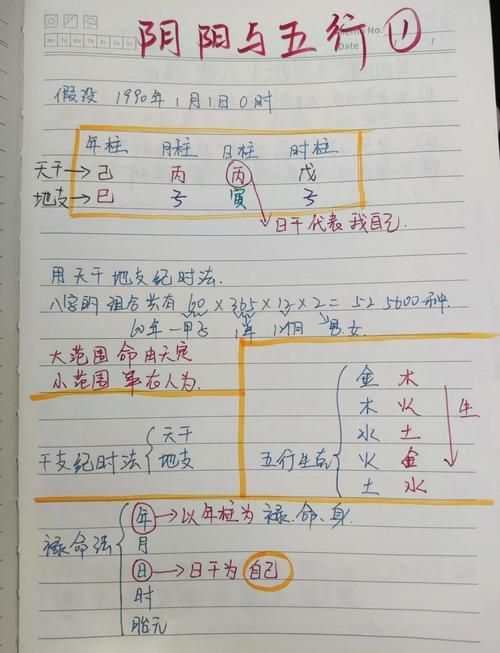 Mo Tu We Th Fr Sa Su
Memo No.
Date
阴阳与五行 ①
假设 1990年1月1日0时
年柱 月柱 日柱 时柱
天干→己 丙 丙 戊
地支→巳 子 寅 子
日干代表我自己.
用天干地支纪时法.
八字的组合共有 60×365×12×2= 525600种.
60年一甲子 1年 12个月 男.女
大范围 命由天定
小范围 事在人为.
干支纪时法 天干
地支
五行生克
金 木
木 火
水 土
火 金
土 水
生
禄命法
年→以年柱为禄.命.身.
月
日→日干为 自己
时
胎元